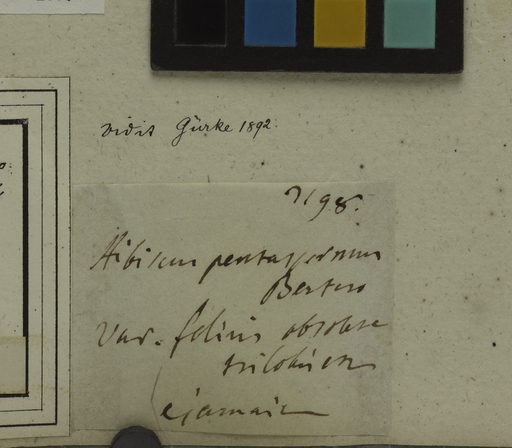 vidit Gürke 1892.
7198.
Hibiscus pentaspermus
Bertero
var. foliis obsolete
trilobis
e jamaica